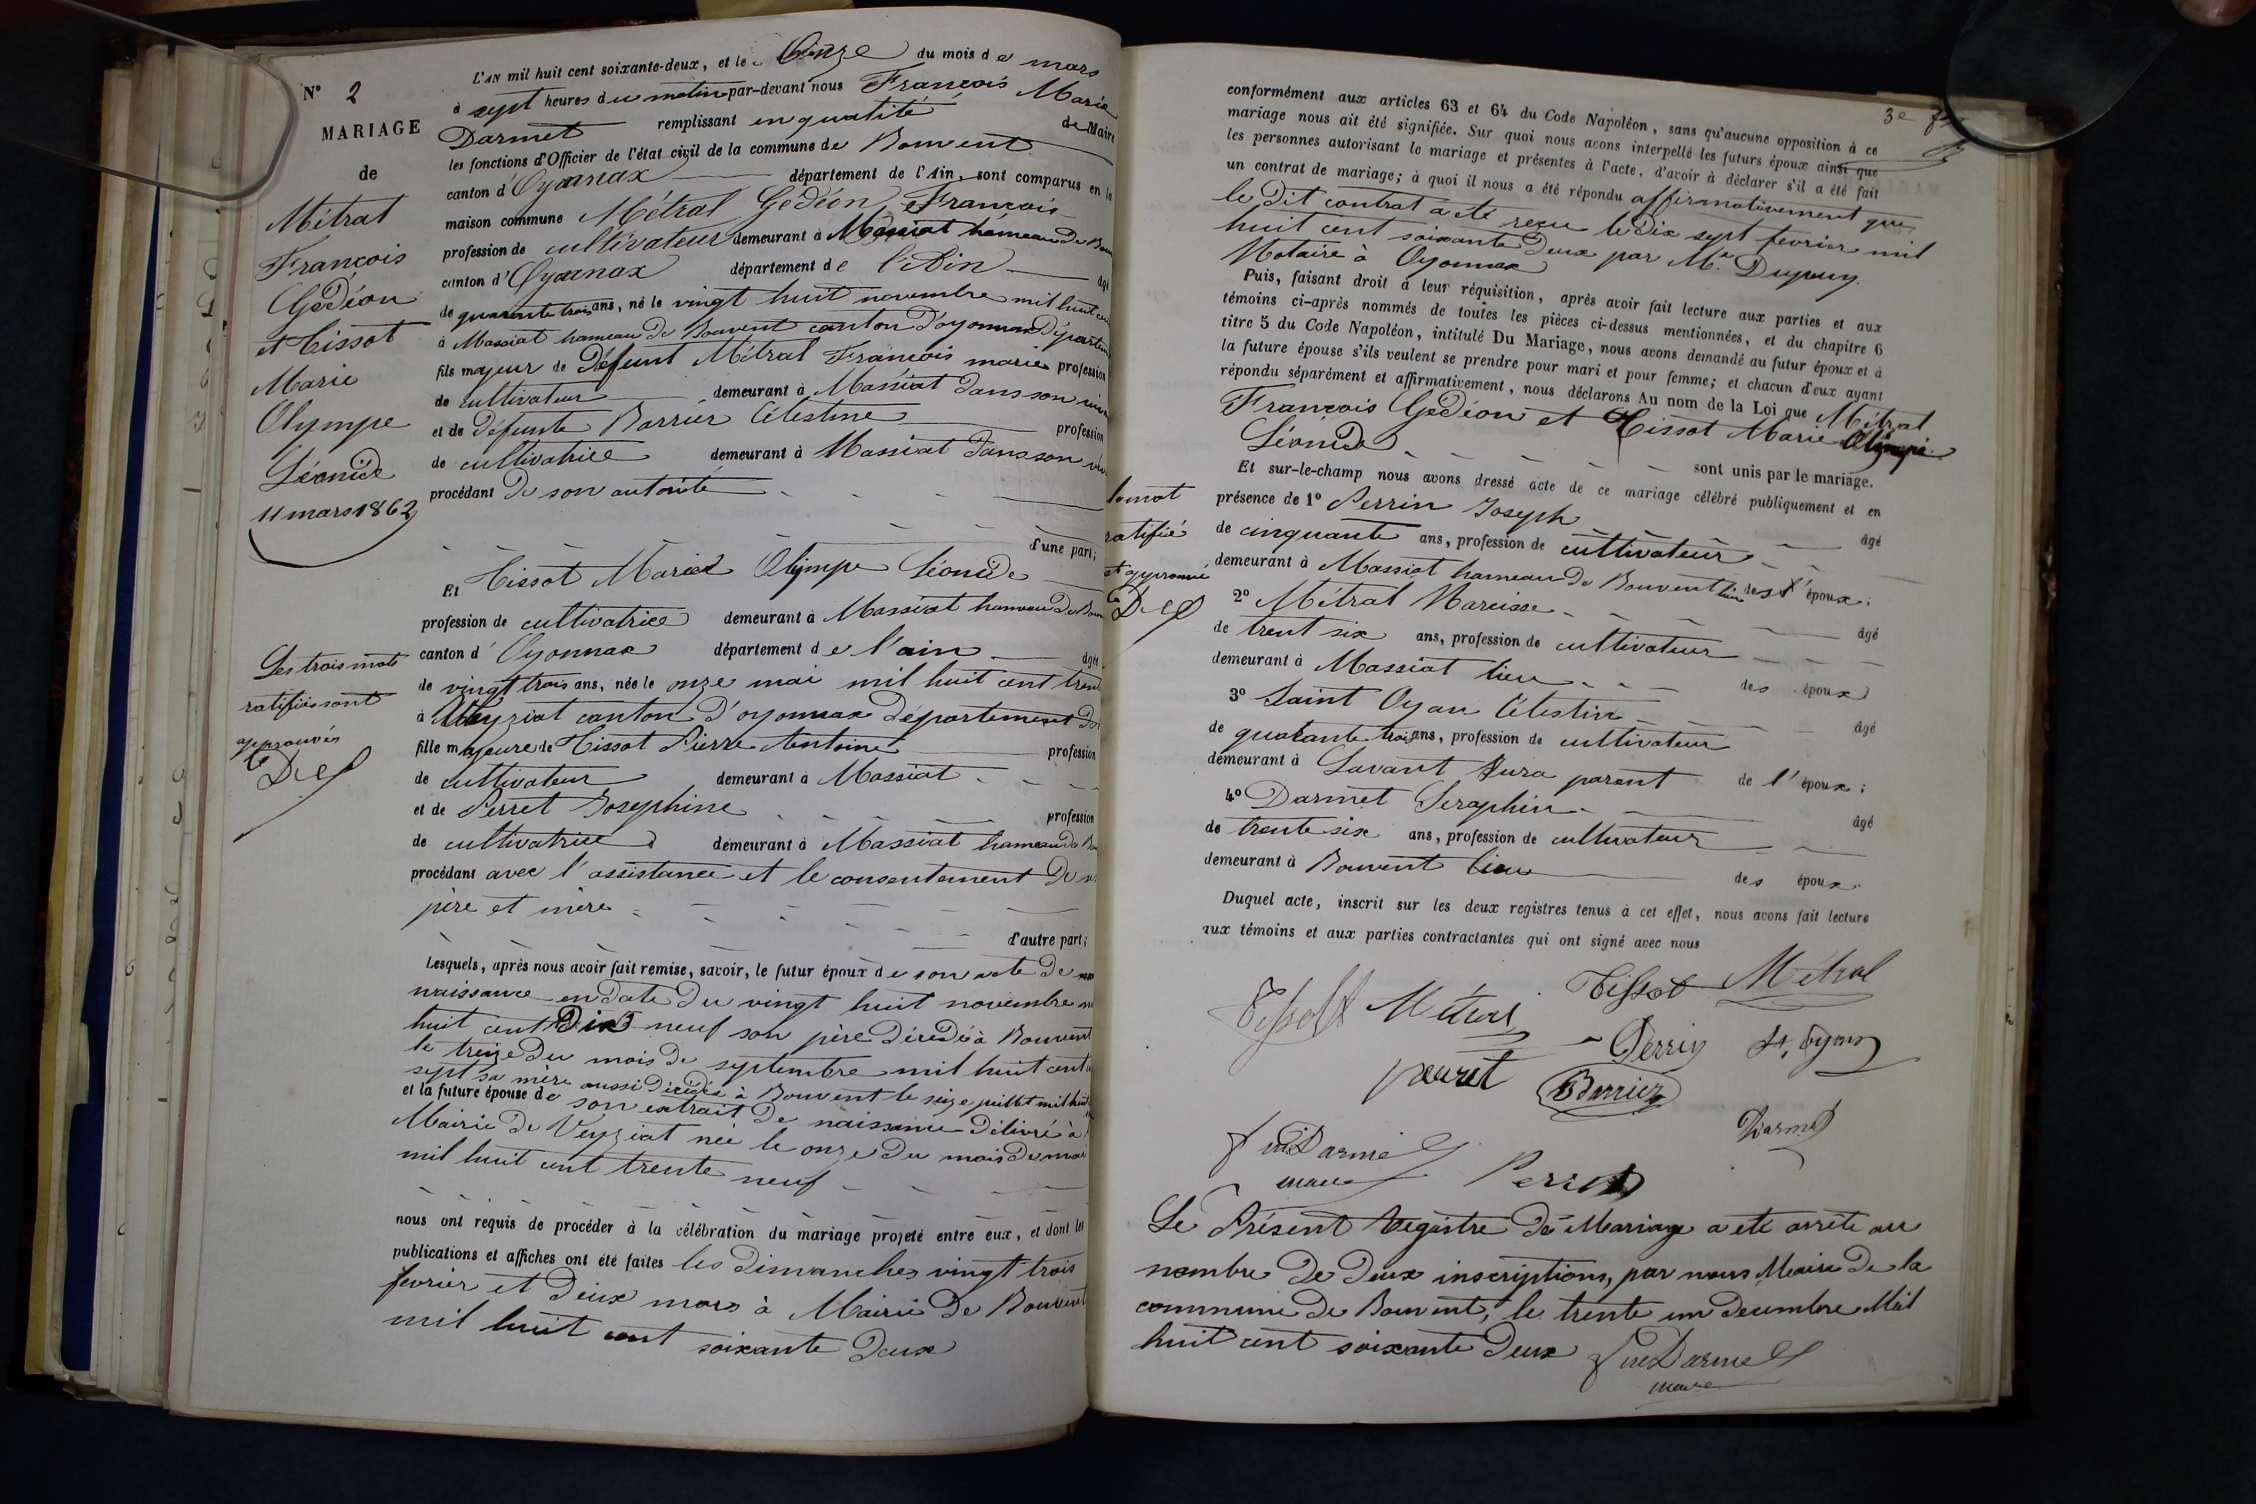 N° 2
MARIAGE
de
Métrat
François
Gédéon
et Tissot
Marie
Olympe
Léonide
11 mars 1862
Les trois mots
ratifiés sont
approuvés
L'AN mil huit cent soixante-deux, et le Onze du mois de mars
à sept heures du matin par-devant nous François Marie
Darmet remplissant en qualité de Maire
les fonctions d'Officier de l'état civil de la commune de Bouvent
canton d'Oyonnax département de l'Ain, sont comparus en la
maison commune Métral Gédéon François
profession de cultivateur demeurant à Massiat hameau de
canton d'Oyonnax département de l'Ain âgé
de quarante trois ans, né le vingt huit novembre mil huit
à Massiat hameau de Bouvent canton d'oyonnax
fils majeur de Défunt Métral François marie profession
de cultivateur demeurant à Massiat dans son
et de défunte Barrier Célestine profession
de cultivatrice demeurant à Massiat dans son
procédant de son autorité
d'une part;
Et Tissot Marie Olympe Léonide
profession de cultivatrice demeurant à Massiat hameau de
canton d'Oyonnax département de l'ain âgée
de vingt trois ans, née le onze mai mil huit cent
à Veyziat canton d'oyonnax département
fille majeure de Tissot Pierre Antoine profession
de cultivateur demeurant à Massiat
et de Perret Josephine profession
de cultivatrice demeurant à Massiat hameau de
procédant avec l'assistance et le consentement de
père et mère
d'autre part;
Lesquels, après nous avoir fait remise, savoir, le futur époux de son acte de
naissance en date du vingt huit novembre
huit cent Dix neuf son père décédé à Bouvent
le treize du mois de septembre mil huit cent
sept sa mère aussi décédée à Bouvent le seize juillet mil huit
et la future épouse de son extrait de naissance délivré à
Mairie de Veyziat née le onze du mois de mai
mil huit cent trente neuf
nous ont requis de procéder à la célébration du mariage projeté entre eux, et dont les
publications et affiches ont été faites les dimanches vingt trois
fevrier et deux mars à Mairie de Bouvent
mil huit cent soixante deux
conformément aux articles 63 et 64 du Code Napoléon, sans qu'aucune opposition à ce
mariage nous ait été signifiée. Sur quoi nous avons interpellé les futurs époux ainsi que
les personnes autorisant le mariage et présentes à l'acte, d'avoir à déclarer s'il a été fait
un contrat de mariage; à quoi il nous a été répondu affirmativement que
le dit contrat a été reçu le dix sept fevrier mil
huit cent soixante deux par Me Dupuy
Notaire à Oyonnax
Puis, faisant droit à leur réquisition, après avoir fait lecture aux parties et aux
témoins ci-après nommés de toutes les pièces ci-dessus mentionnées, et du chapitre 6
titre 5 du Code Napoléon, intitulé Du Mariage, nous avons demandé au futur époux et à
la future épouse s'ils veulent se prendre pour mari et pour femme; et chacun d'eux ayant
répondu séparément et affirmativement, nous déclarons Au nom de la Loi que Métral
François Gédéon et Tissot Marie Olimpe
Léonide sont unis par le mariage.
Et sur-le-champ nous avons dressé acte de ce mariage célébré publiquement et en
présence de 1° Perrin Joseph âgé
de cinquante ans, profession de cultivateur
demeurant à Massiat hameau de Bouvent lieu des époux;
2° Métral Narcisse âgé
de trent six ans, profession de cultivateur
demeurant à Massiat lieu des époux
3° Saint Oyan Célestin âgé
de quarante trois ans, profession de cultivateur
demeurant à Lavant Jura parent de l'époux;
4° Darmet Seraphin âgé
de trente six ans, profession de cultivateur
demeurant à Bouvent lieu des époux.
Duquel acte, inscrit sur les deux registres tenus à cet effet, nous avons fait lecture
aux témoins et aux parties contractantes qui ont signé avec nous
Tissot Métral
Perrin St. Oyan
Barrier
Darmet
maire
Le Présent Registre de Mariage a été arrêté au
nombre de deux inscriptions, par nous Maire de la
commune de Bouvent, le trente un decembre Mil
huit cent soixante deux
maire